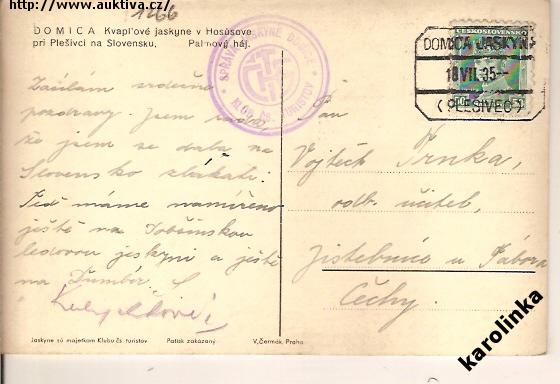 http://www.auktiva.cz/
1266
DOMICA Kvapľové jaskyne v Hosúsove
pri Plešivci na Slovensku, Palmový háj.
SPRÁVA JASKYNE DOMICE
KLUB ČS. TURISTOV
KČT
ČESKOSLOVENSKO
DOMICA JASKYŇA
18 VII. 35
(PLEŠIVEC)
Zasílám srdečné
pozdravy. Jsem ráda,
že jsem se dala na
Slovensko zlákati.
Teď máme namířeno
ještě na Dobšinskou
ledovou jeskyni a ještě
na Ďumbír.
Pan
Vojtěch Trnka,
odb. učitel,
Jistebnice u Tábora
Čechy.
Jaskyne sú majetkom Klubu čs. turistov Patisk zakázaný V. Čermák, Praha
karolinka